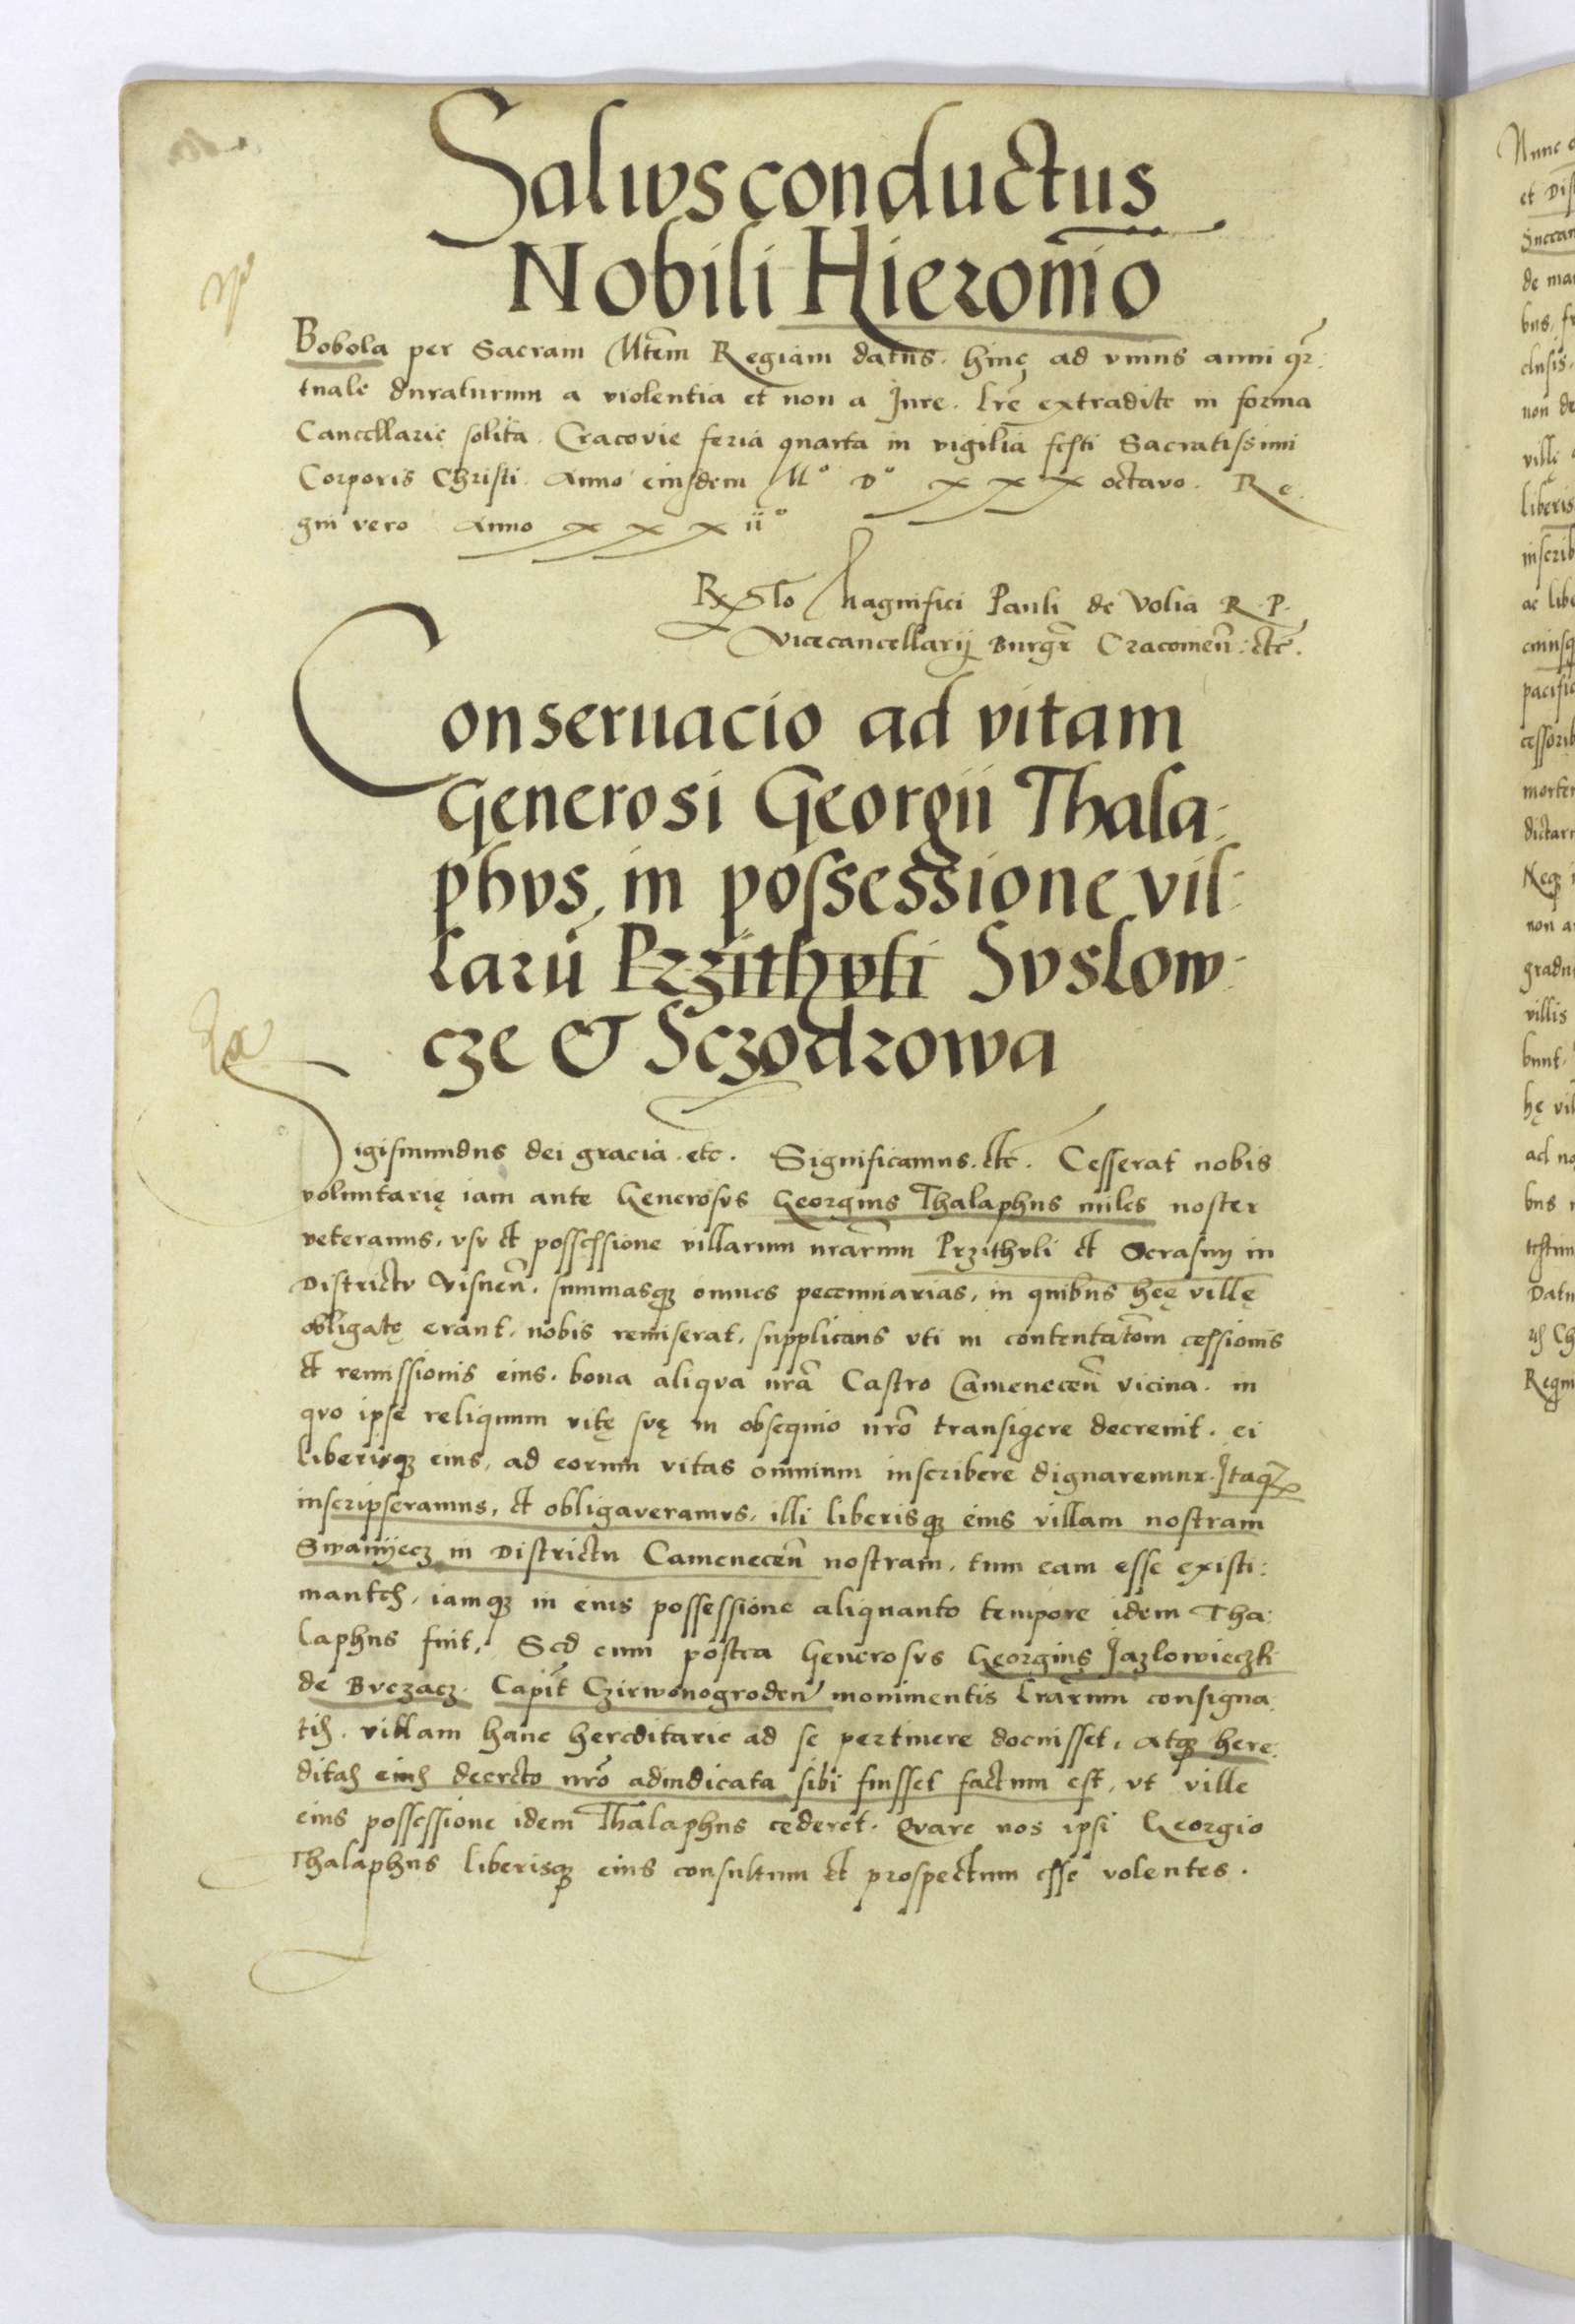 Salwsconductus
Nobili Hieronĩo
Bobola per Sacram Mtẽm Regiam datus. hinc ad vnius anni qr̃:
tuale duraturum a violentia et non a Jure. Lrẽ extradite in forma
Cancellarie solita. Cracovie feria quarta in vigilia festi Sacratissimi
Corporis Christi. Anno eiusdem Mº Dº xxx octavo. Re
gni vero Anno xxxiiº
Rlo Magnifici Pauli de Volia R. P.
Vicecancellarij Burgr̃ Cracovieñ: etc.
Conseruacio ad vitam
Generosi Georgii Thala:
phvs, in possessione vil:
larũ Przithvli Svslow:
cze & Sczodrowa
Sigismundus dei gracia. etc. Significamus. etc. Cesserat nobis
voluntarię iam ante Generosvs Georgius Thalaphus miles noster
veteranus, vsv et possessione villarum nrãrum Przithvli et Ocrasyn in
Districtv Visneñ. summasq3 omnes pecunniarias, in quibus heę villę
obligatę erant, nobis remiserat, supplicans vti in contentatõm cessionis
et remissionis eius. bona aliqva nrã Castro Cameneceñ vicina. in
qvo ipse reliquum vitę svę in obsequio nrõ transigere decreuit. ei
liberisq3 eius, ad eorum vitas omnium inscribere dignaremur. Itaq3
inscripseramus, et obligaveramvs, illi liberisq3 eius villam nostram
Swanyecz in Districtu Cameneceñ nostram, tum eam esse existi:
mantes, iamq3 in eius possessione aliquanto tempore idem Tha:
laphus fuit. Sed cum postea Generosvs Georgius Jazlowieczki
de Bvczacz. Capit̃ Czirwonogrodeñ monimentis lrãrum consigna:
tis. villam hanc hereditarie ad se pertinere docuisset, atq3 here:
ditas eius decreto nrõ adiudicata sibi fuisset factum est, vt ville
eius possessione idem Thalaphus cederet. Qvare nos ipsi Georgio
Thalaphus liberisq3 eius consultum et prospectum esse volentes.